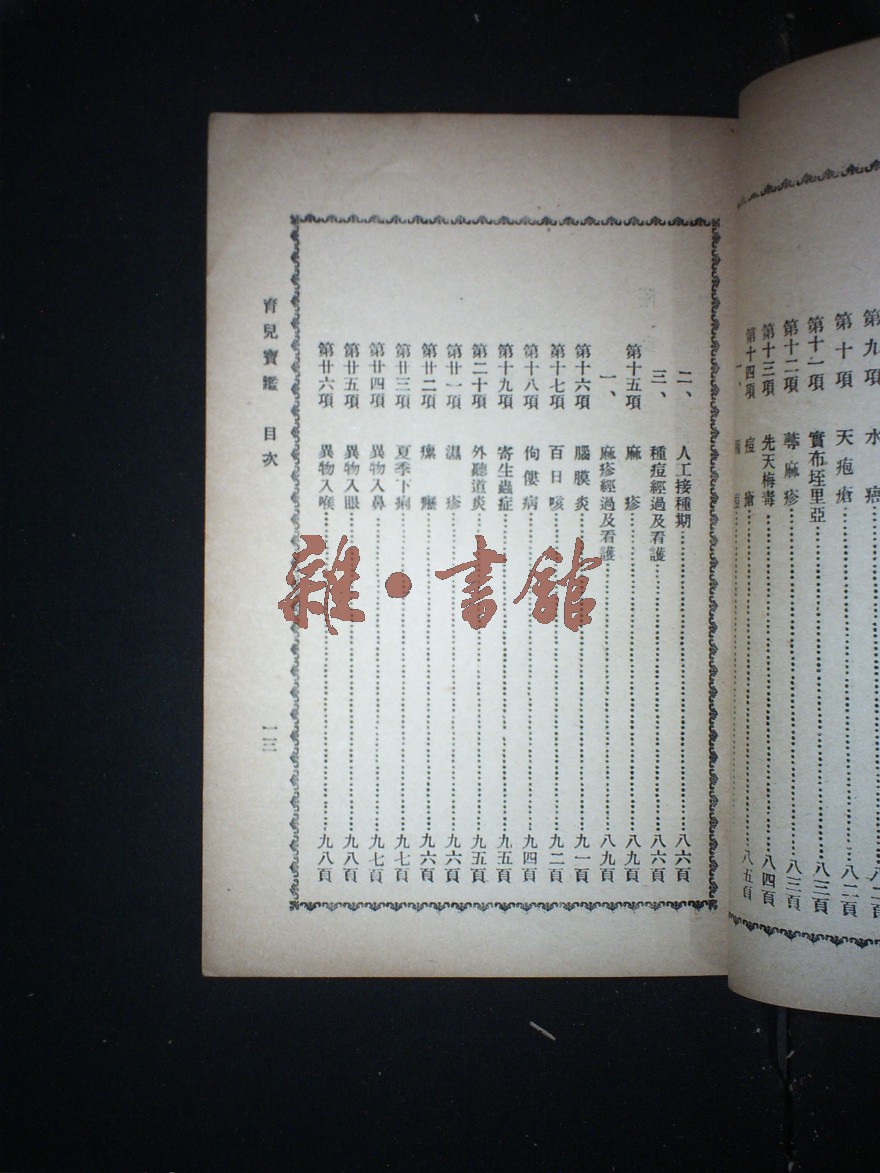 第九項 水癌……八二頁
第十項 天疱瘡……八二頁
第十一項 實布垤里亞……八三頁
第十二項 蕁麻疹……八三頁
第十三項 先天梅毒……八四頁
第十四項 痘瘡……八五頁
一、
二、 人工接種期……八六頁
三、 種痘經過及看護……八六頁
第十五項 麻疹……八九頁
一、 麻疹經過及看護……八九頁
第十六項 腦膜炎……九一頁
第十七項 百日咳……九二頁
第十八項 佝僂病……九四頁
第十九項 寄生蟲症……九五頁
第二十項 外聽道炎……九五頁
第廿一項 濕疹……九六頁
第廿二項 瘰癧……九六頁
第廿三項 夏季下痢……九七頁
第廿四項 異物入鼻……九七頁
第廿五項 異物入眼……九八頁
第廿六項 異物入喉……九八頁
育兒寶鑑 目次
一三
雜·書館